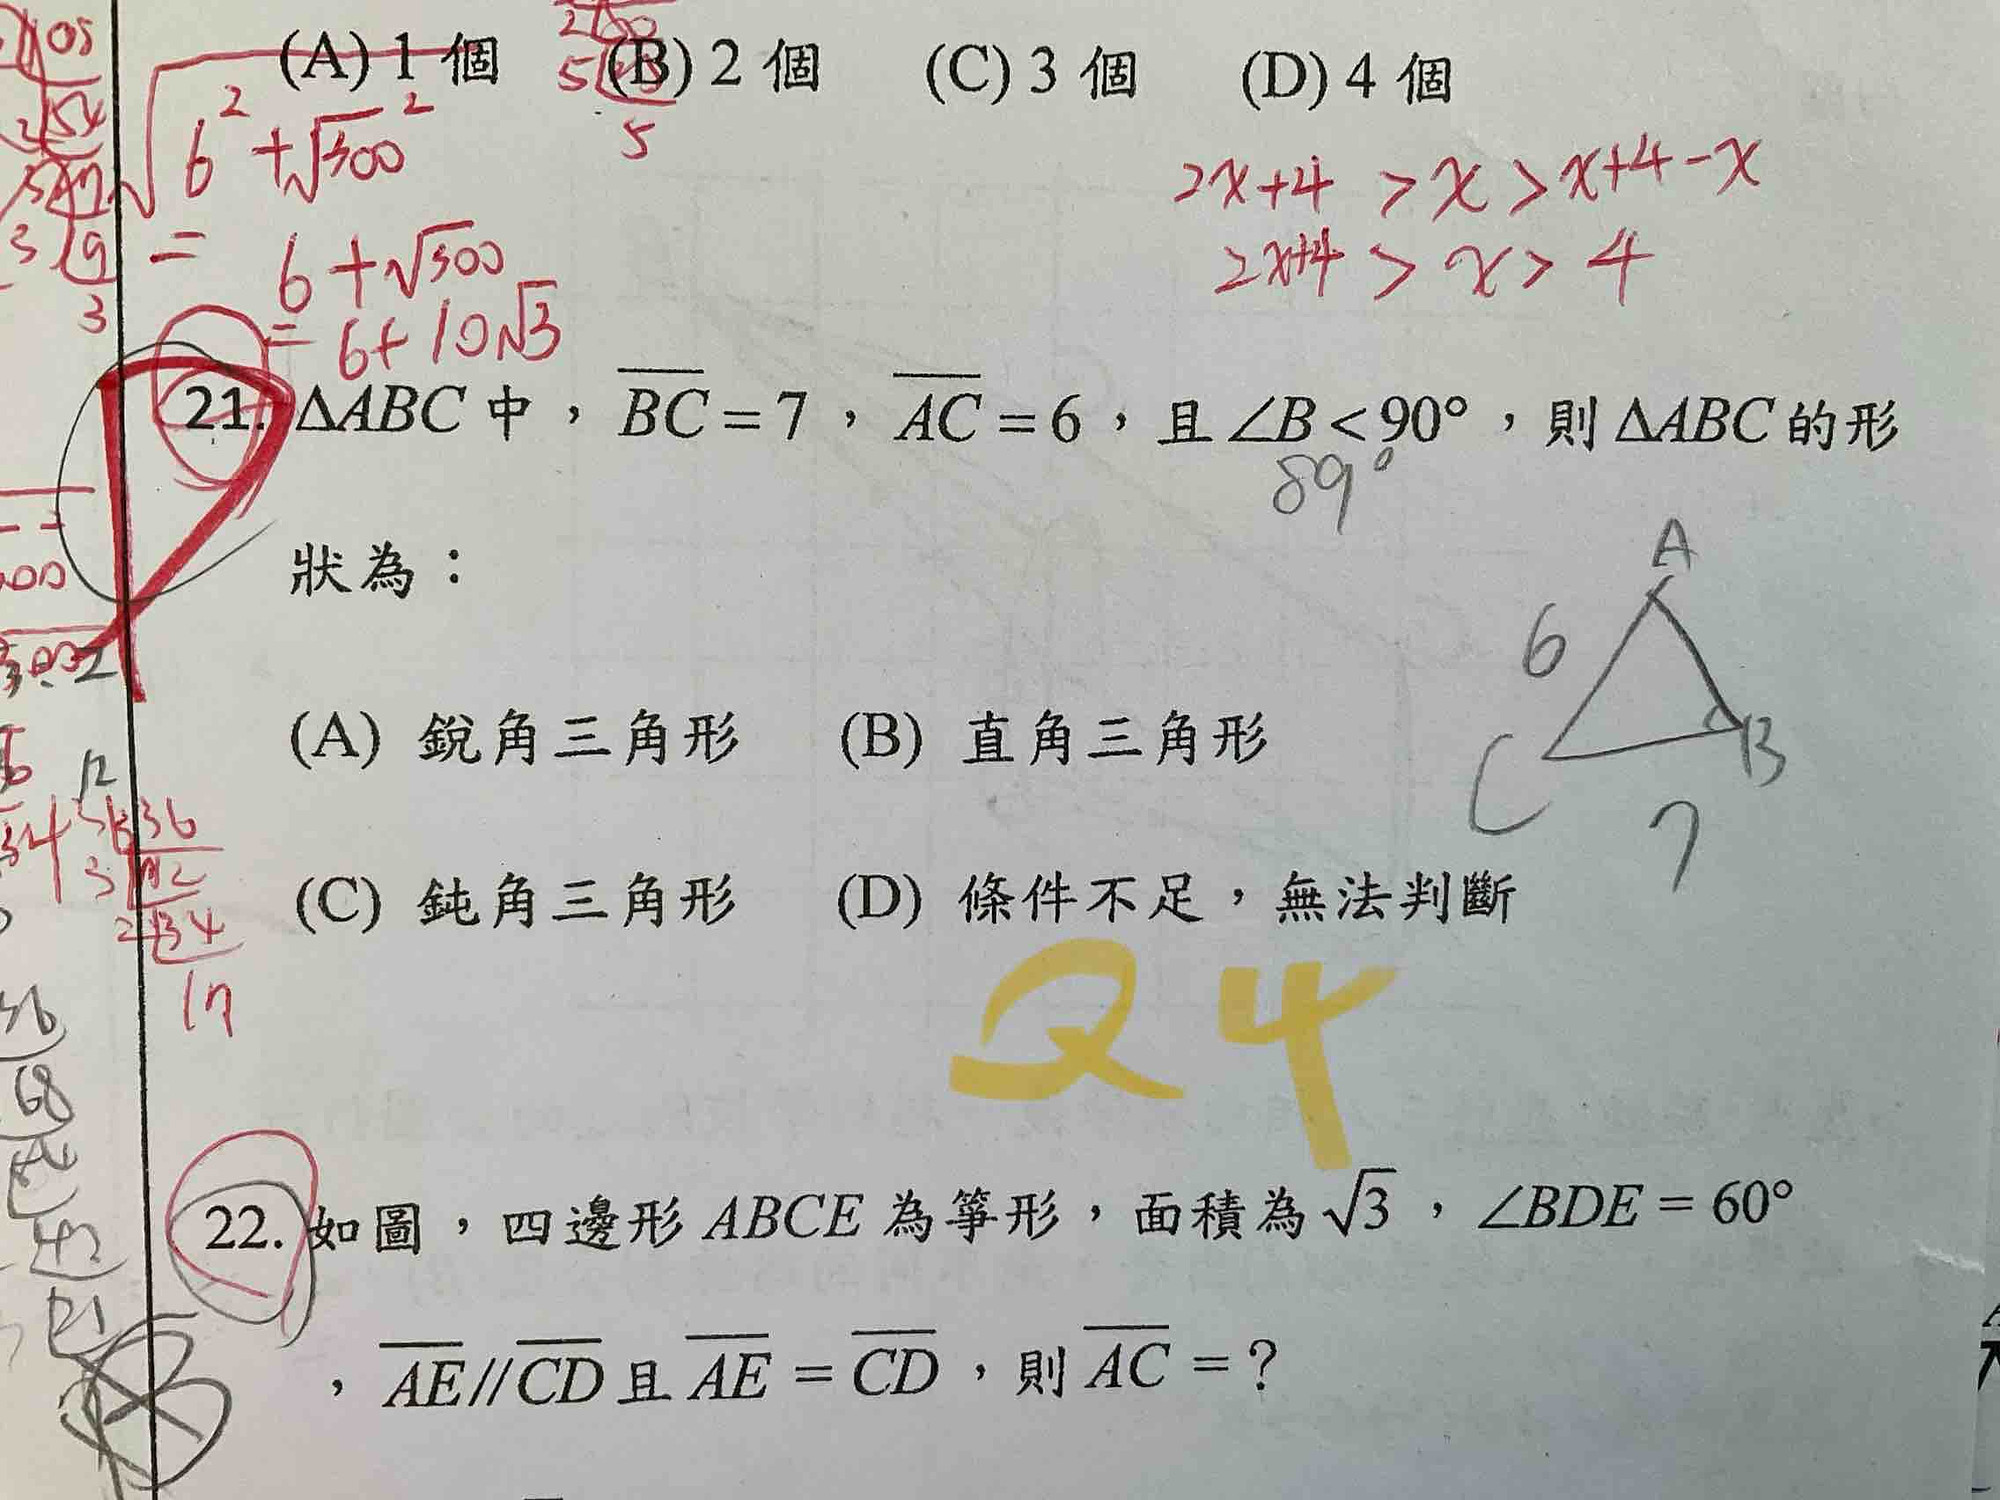 (A) 1 個 (B) 2 個 (C) 3 個 (D) 4 個
6² + √300²
2x+4 > x > x+4-x
= 6 + √300
2x+4 > x > 4
= 6 + 10√3
21. ΔABC 中，BC = 7，AC = 6，且 ∠B < 90°，則 ΔABC 的形
89°
狀為：
A
6
B
C
7
(A) 銳角三角形 (B) 直角三角形
(C) 鈍角三角形 (D) 條件不足，無法判斷
12
17
Q4
68
22. 如圖，四邊形 ABCE 為箏形，面積為 √3，∠BDE = 60°
，AE // CD 且 AE = CD，則 AC = ?